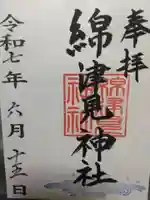 奉拝
綿津見神社
令和七年六月十五日